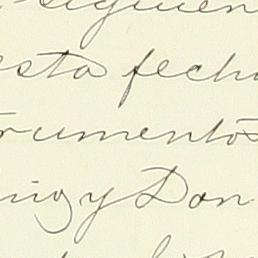 siguien
esta fecha
rumentos
y Don